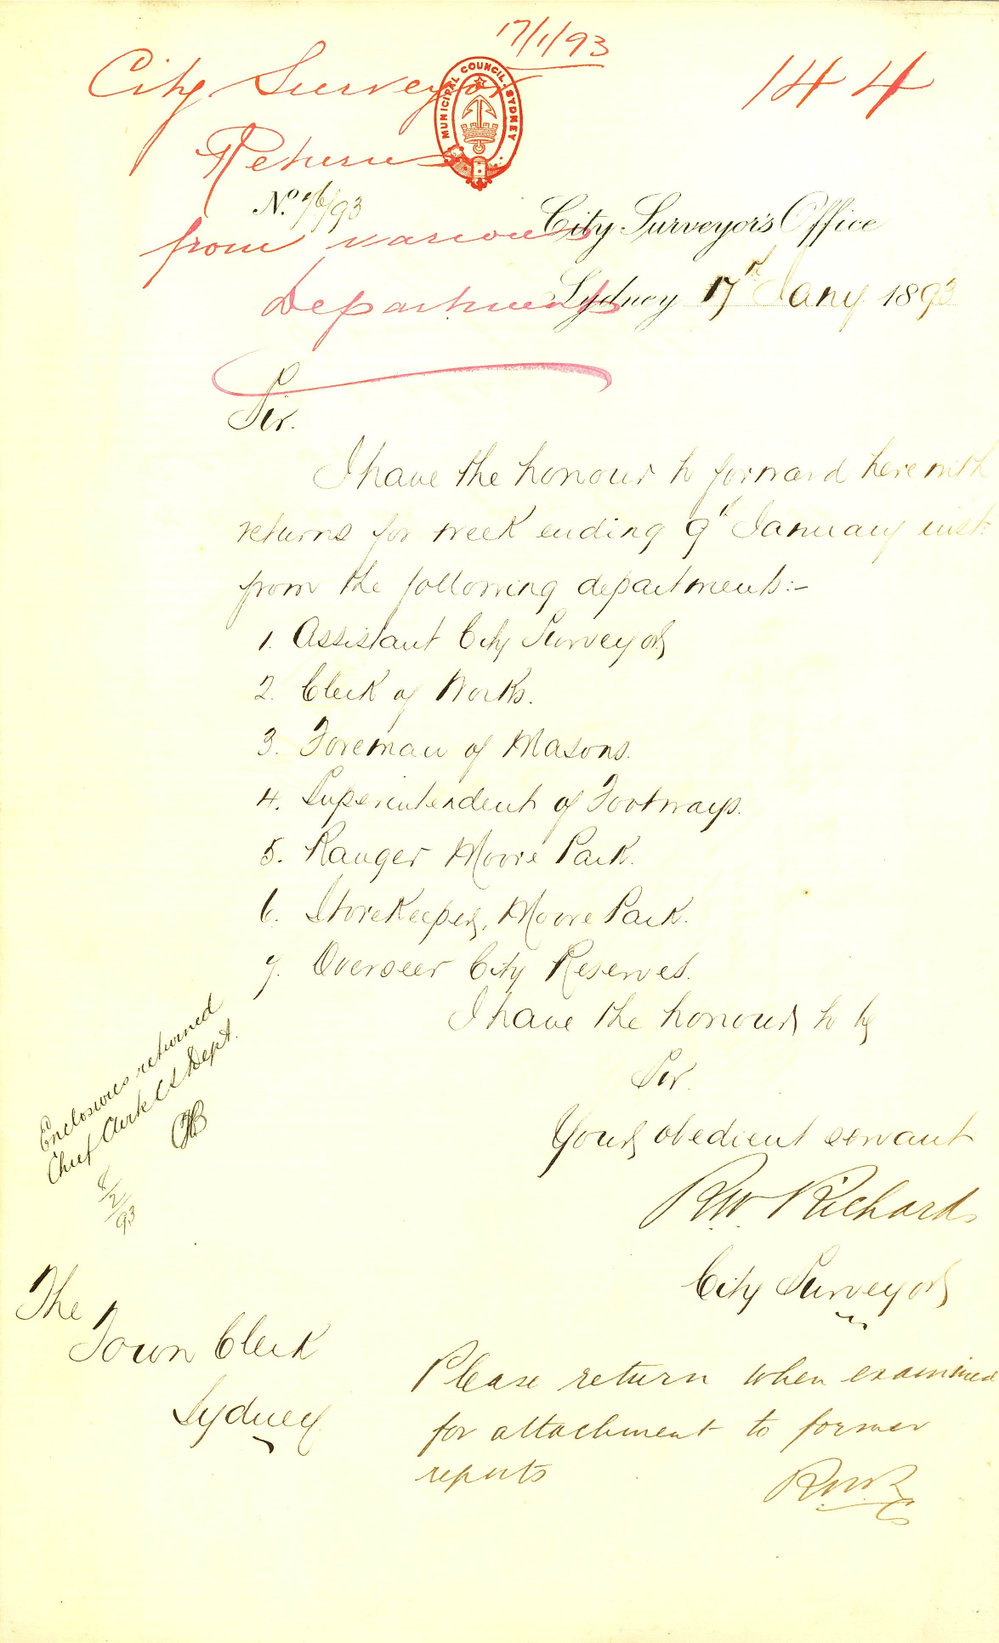 17/1/93
City Surveyor
144
MUNICIPAL COUNCIL. SYDNEY
Returns
No. 76/93
City Surveyor's Office
from various
Departments
Sydney 17th Jany 1893
Sir.
I have the honour to forward herewith
returns for week ending 9th January inst:
from the following departments:-
1. Assistant City Surveyor,
2. Clerk of Works.
3. Foreman of Masons.
4. Superintendent of Footways.
5. Ranger Moore Park.
6. Storekeeper, Moore Park.
7. Overseer City Reserves.
I have the honour to be
Sir.
Your obedient servant
R.W. Richards
City Surveyor
Enclosures returned
Chief Clerk CS Dept.
8/2/93
The
Town Clerk
Sydney
Please return when examined
for attachment to former
reports
RWR